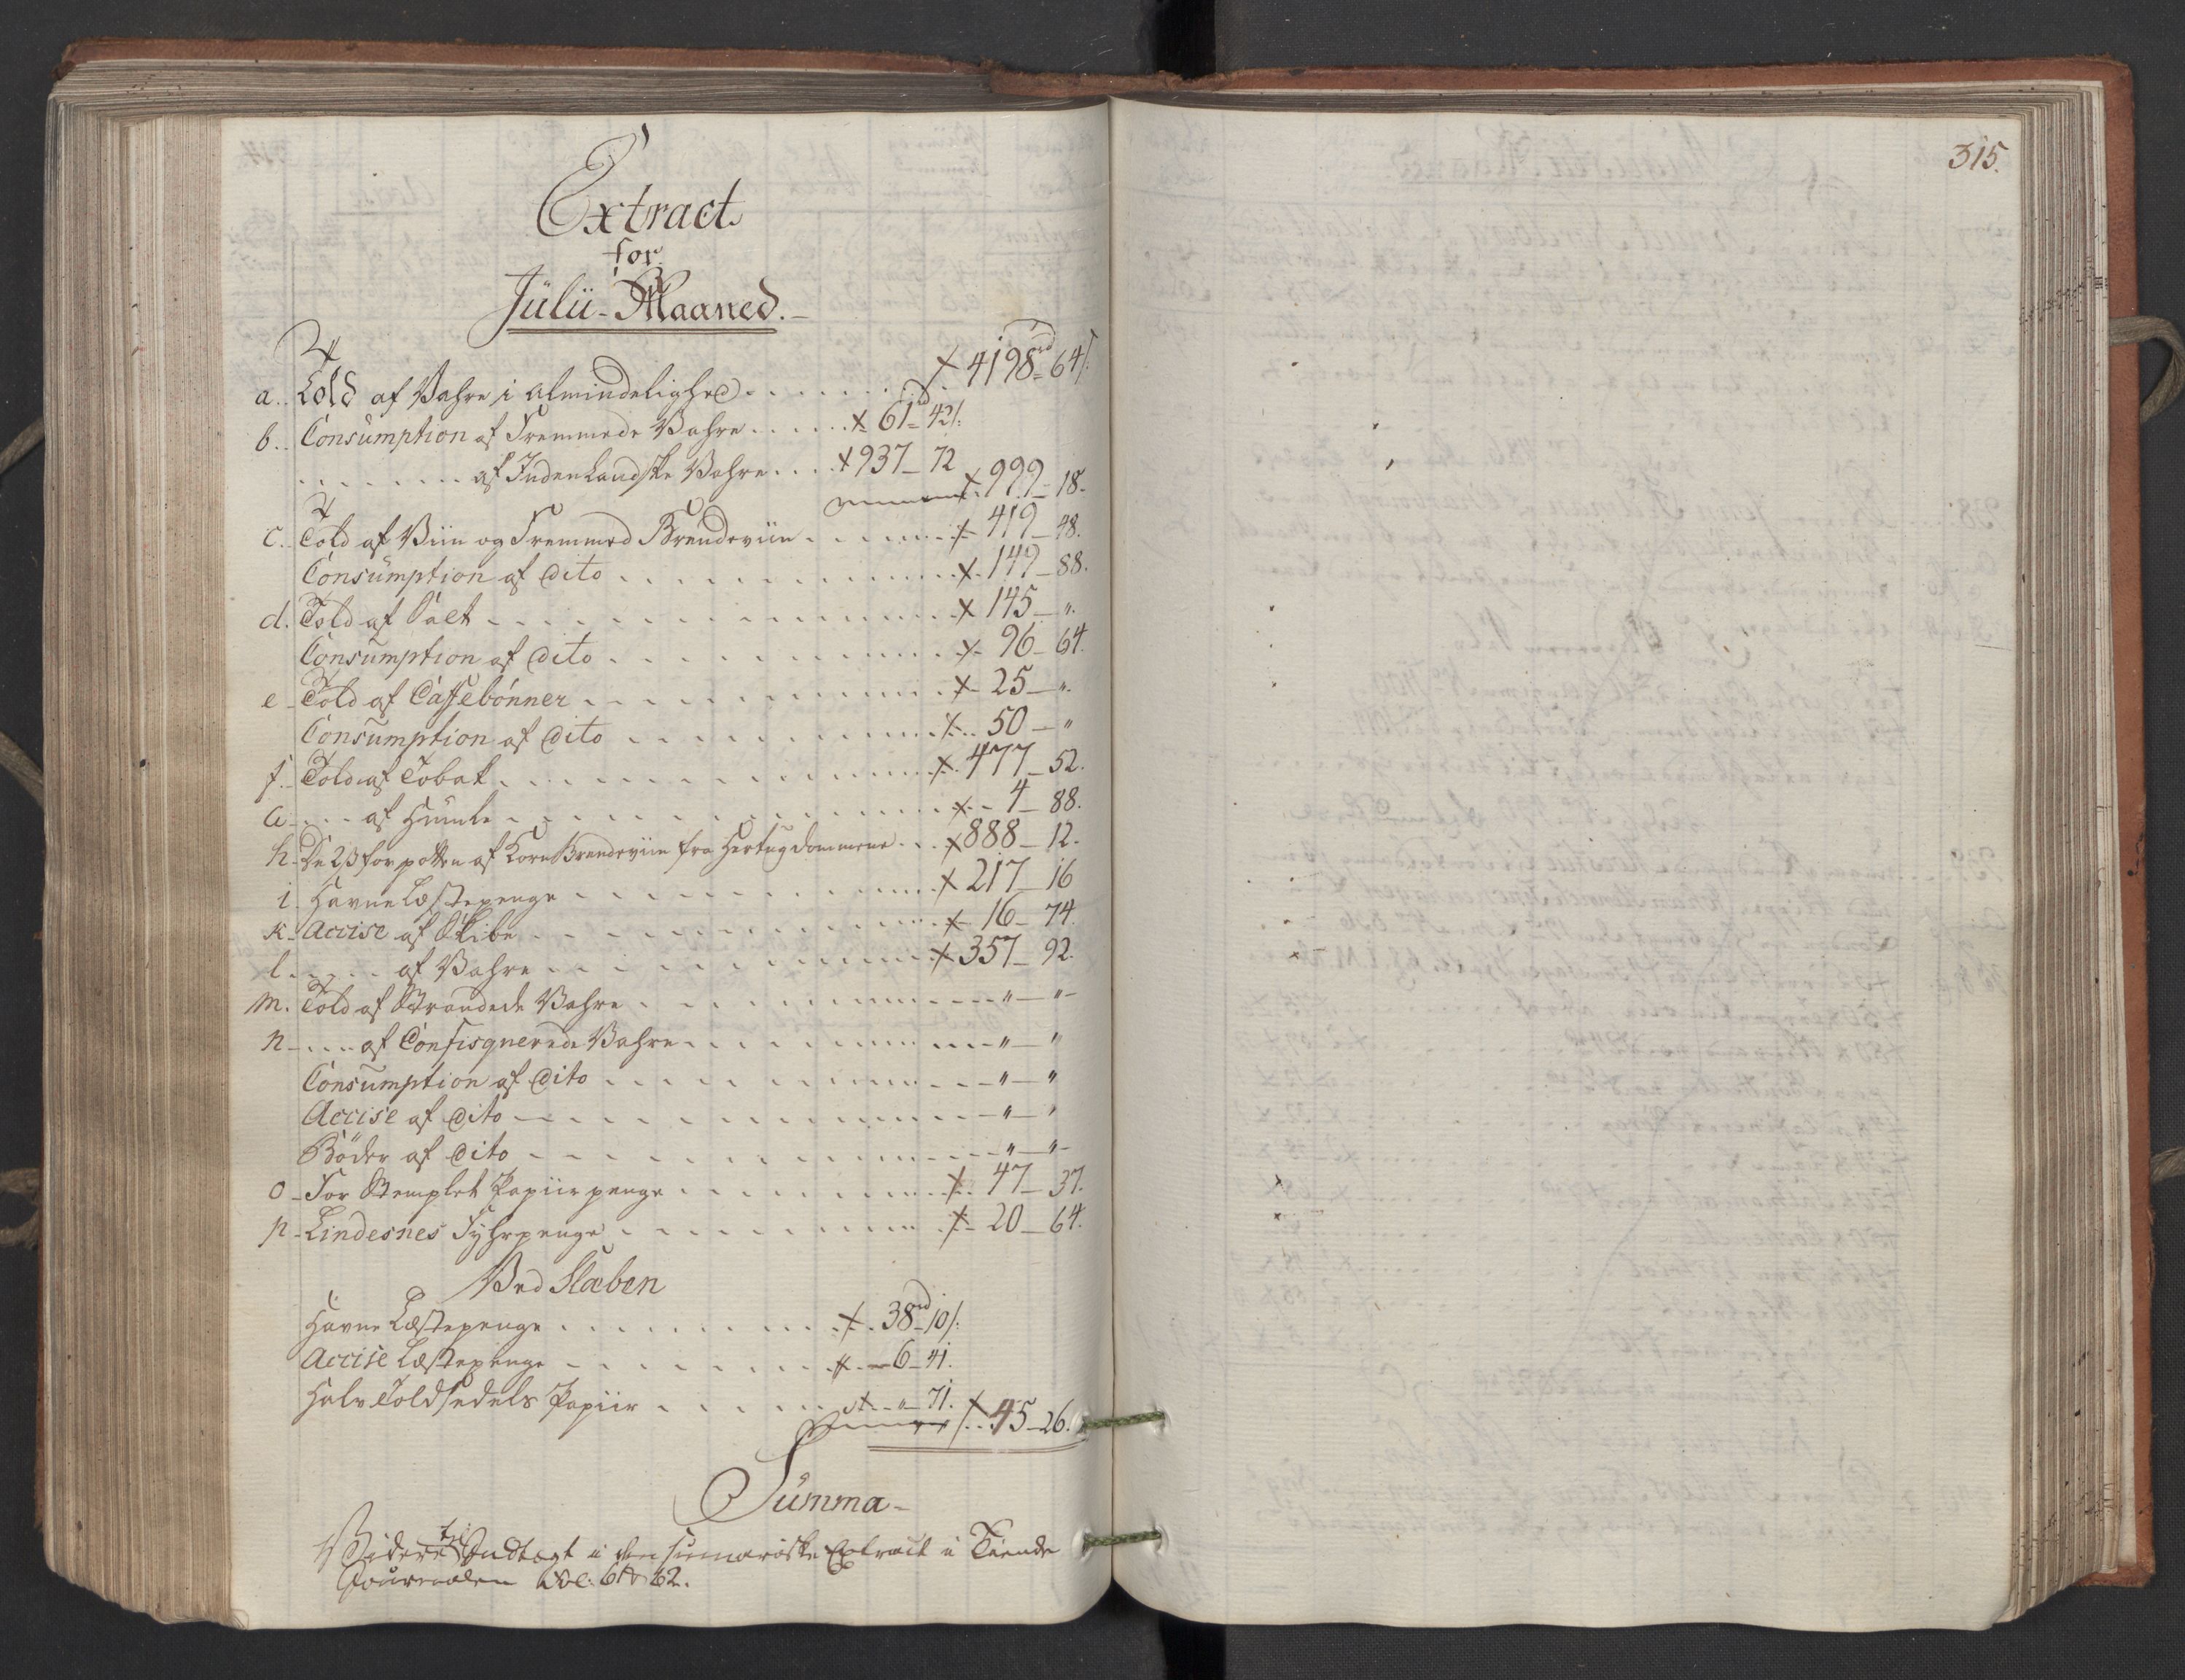 315.
Extract
for
Julii-Maaned.
a. Told af Vahre i Almindelighed x 4198rd 64s:
b. Consumption af Fremmede Vahre x 61rd 42s:
af Indenlandske Vahre x 937 - 72
x 999 - 18.
c. Told af Viin og Fremmed Brendeviin x 419 - 48.
Consumption af dito x 149 - 88.
d. Told af Salt x 145 - ".
Consumption af dito x 96 - 64.
e - Told af Caffebönner x 25 - ".
Consumption af dito x 50 - "
f. Told af Tobak x 477 - 52.
G - af Humle x 4 - 88.
h. De 2 ß for potten af Korn Brendeviin fra Hertugdommene x 888 - 12.
i. Havne Læstepenge x 217 - 16
K. Accise af Skibe x 16 - 74.
l. af Vahre x 357 - 92.
m. Told af Strandede Vahre " - " -
n - af Confisquerede Vahre " - "
Consumption af dito " - "
Accise af dito " - "
Böder af dito " - " -
o - For Stemplet Papiir penge x 47 - 37.
p - Lindesnes Fyhrpenge x 20 - 64.
Ved Slæben
Havne Læstepenge x 38rd 10s:
Accise Læstepenge x 6 - 41.
Halv Toldsedels Papiir x " - 71.
x 45 - 26.
Summa -
Videre til Indtægt i den sumariske Extract i Tiende
Journalen Fol: 61 & 62.